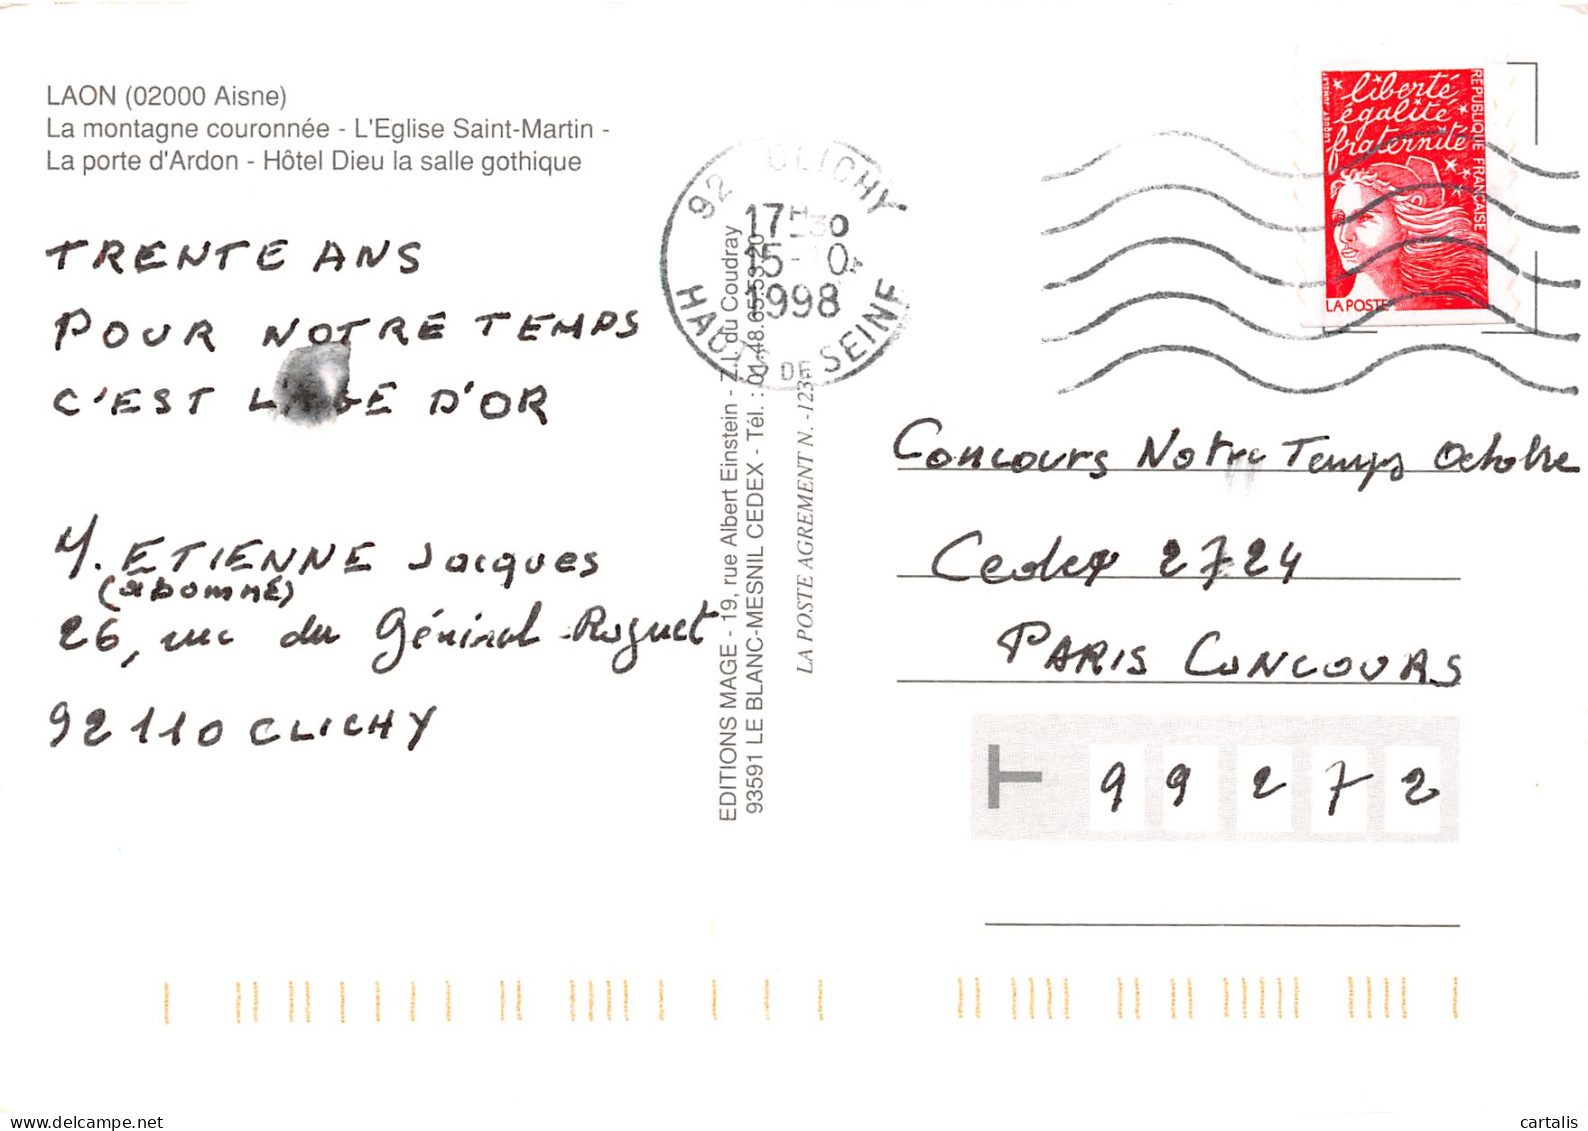 LAON (02000 Aisne)
La montagne couronnée - L'Eglise Saint-Martin -
La porte d'Ardon - Hôtel Dieu la salle gothique
TRENTE ANS
POUR NOTRE TEMPS
C'EST L'AGE D'OR
M. ETIENNE Jacques
(abonné)
26, rue du Général-Roguet
92110 CLICHY
EDITIONS MAGE - 19, rue Albert Einstein - Z.I. du Coudray
93591 LE BLANC-MESNIL CEDEX - Tél. : 01.48.65.53.20
LA POSTE AGREMENT N. -123
92 CLICHY
17H30
15-10
1998
HAUTS DE SEINE
liberté
égalité
fraternité
REPUBLIQUE FRANÇAISE
LA POSTE
Concours Notre Temps Octobre
Cedex 2724
PARIS CONCOURS
T 99272
delcampe.net
cartalis